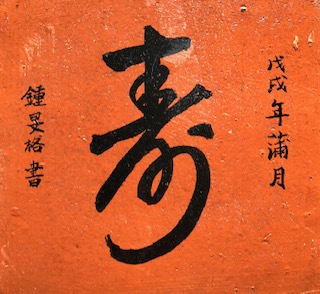 戊戌年蒲月
寿
鍾旻格書